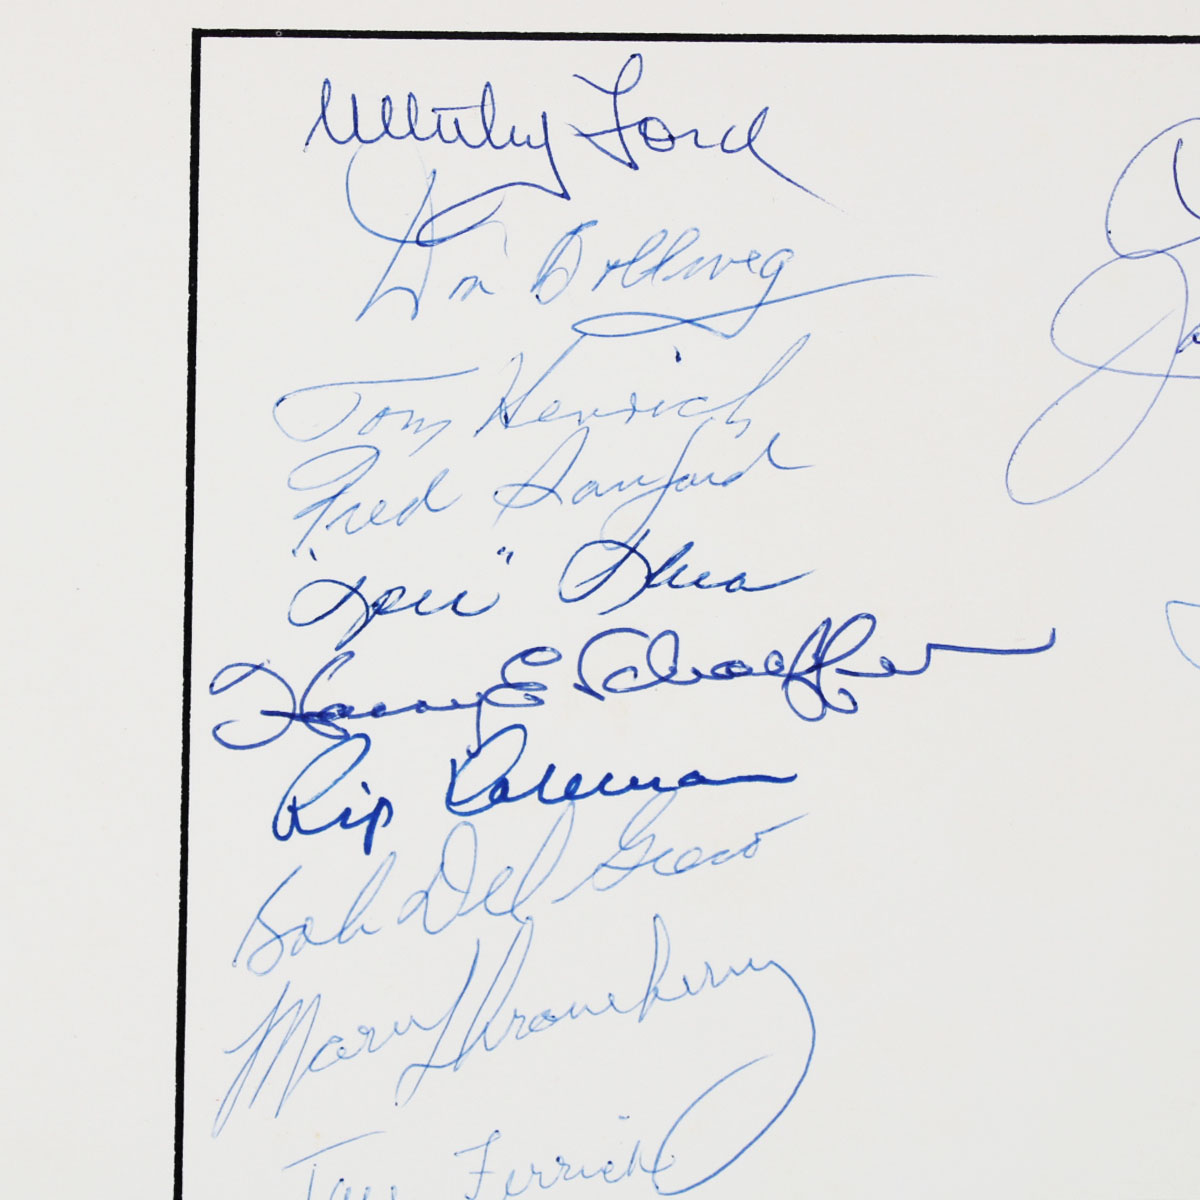 Whitey Ford
Don Bollweg
Tom Henrich
Fred Sanford
"Spec" Shea
Harry E Schaeffer
Rip Coleman
Bob Del Greco
Marv Throneberry
Tom Ferrick